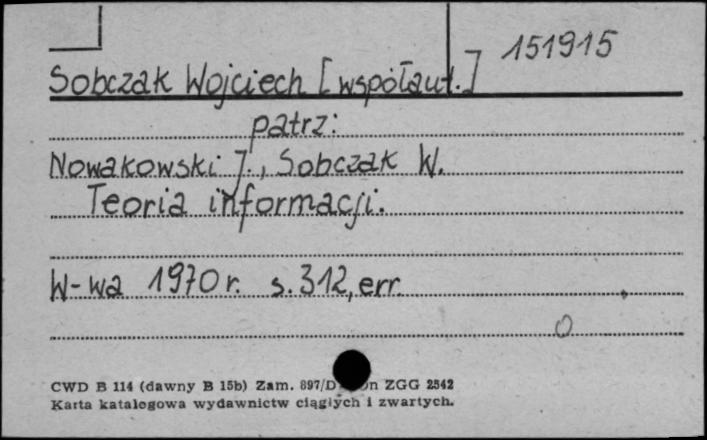 151915
Sobczak Wojciech [współaut.]
patrz:
Nowakowski J., Sobczak W.
Teoria informacji.
W-wa 1970 r. s. 312, err.
CWD B 114 (dawny B 15b) Zam. 897/D ZGG 2542
Karta katalogowa wydawnictw ciągłych i zwartych.